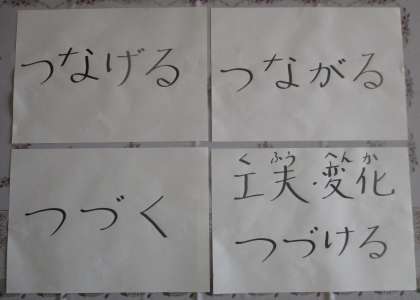 つなげる
つながる
つづく
くふう へんか
工夫・変化
つづける